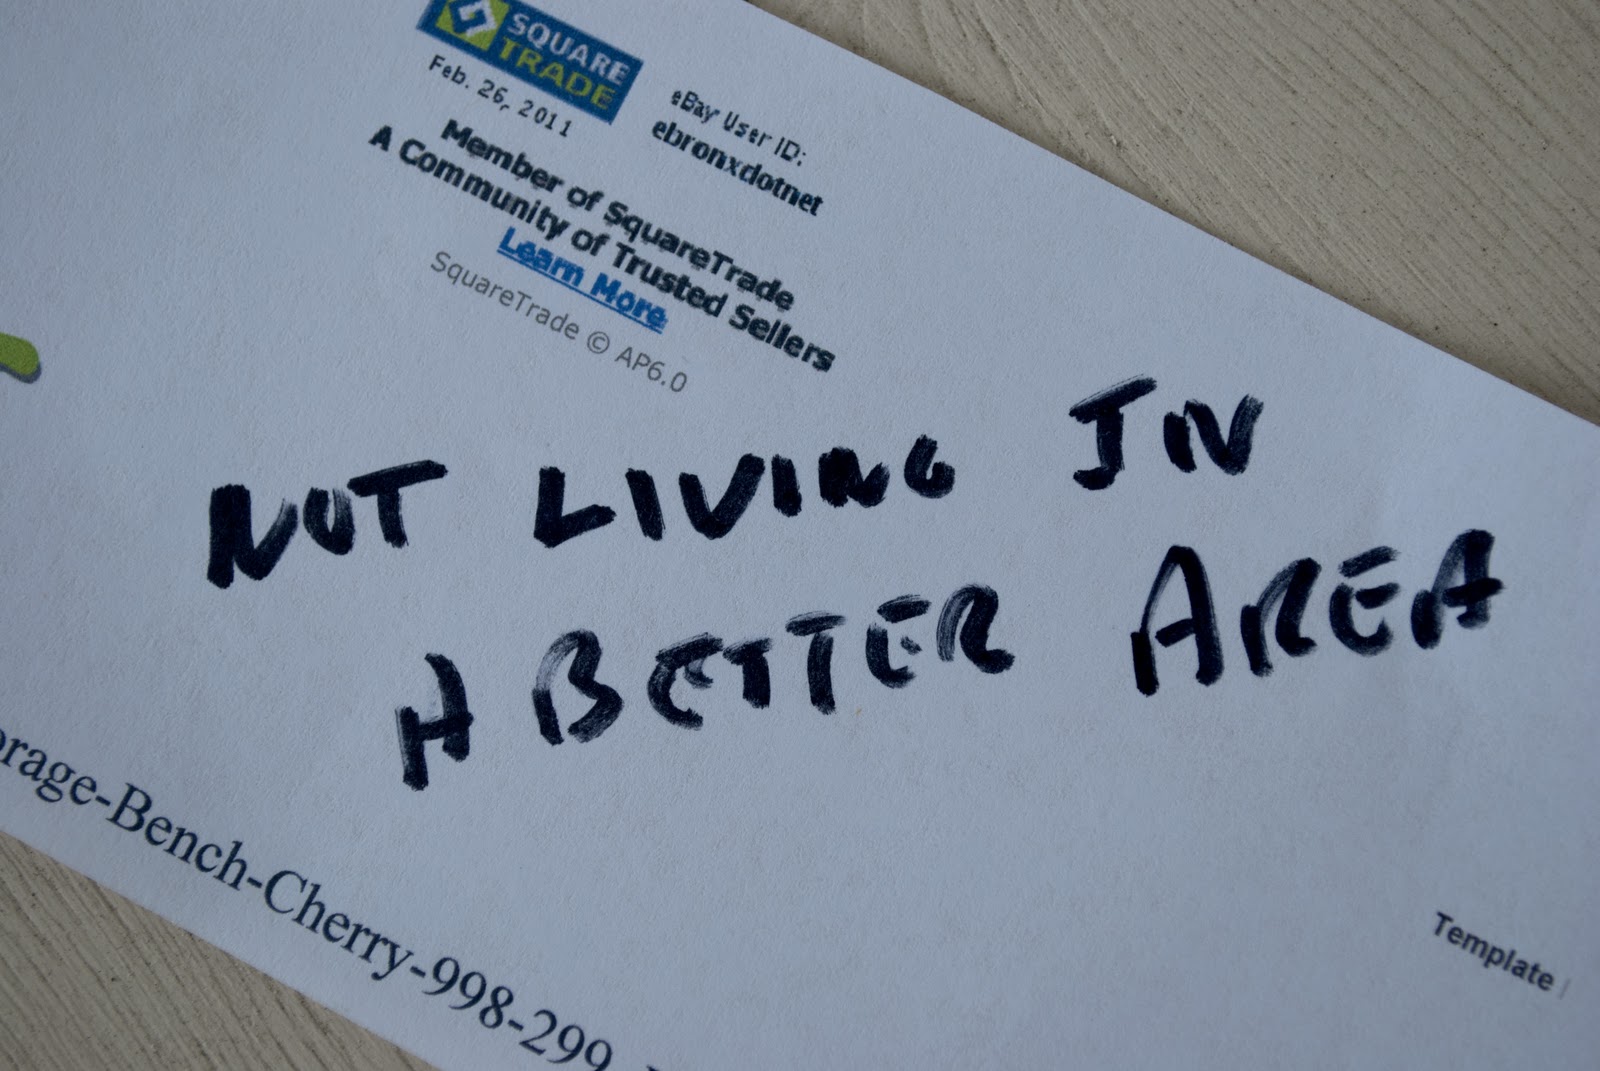 SQUARE
TRADE
Feb. 26, 2011
eBay User ID:
ebronxdotnet
Member of SquareTrade
A Community of Trusted Sellers
Learn More
SquareTrade © AP6.0
NOT LIVING IN
A BETTER AREA
orage-Bench-Cherry-998-299
Template